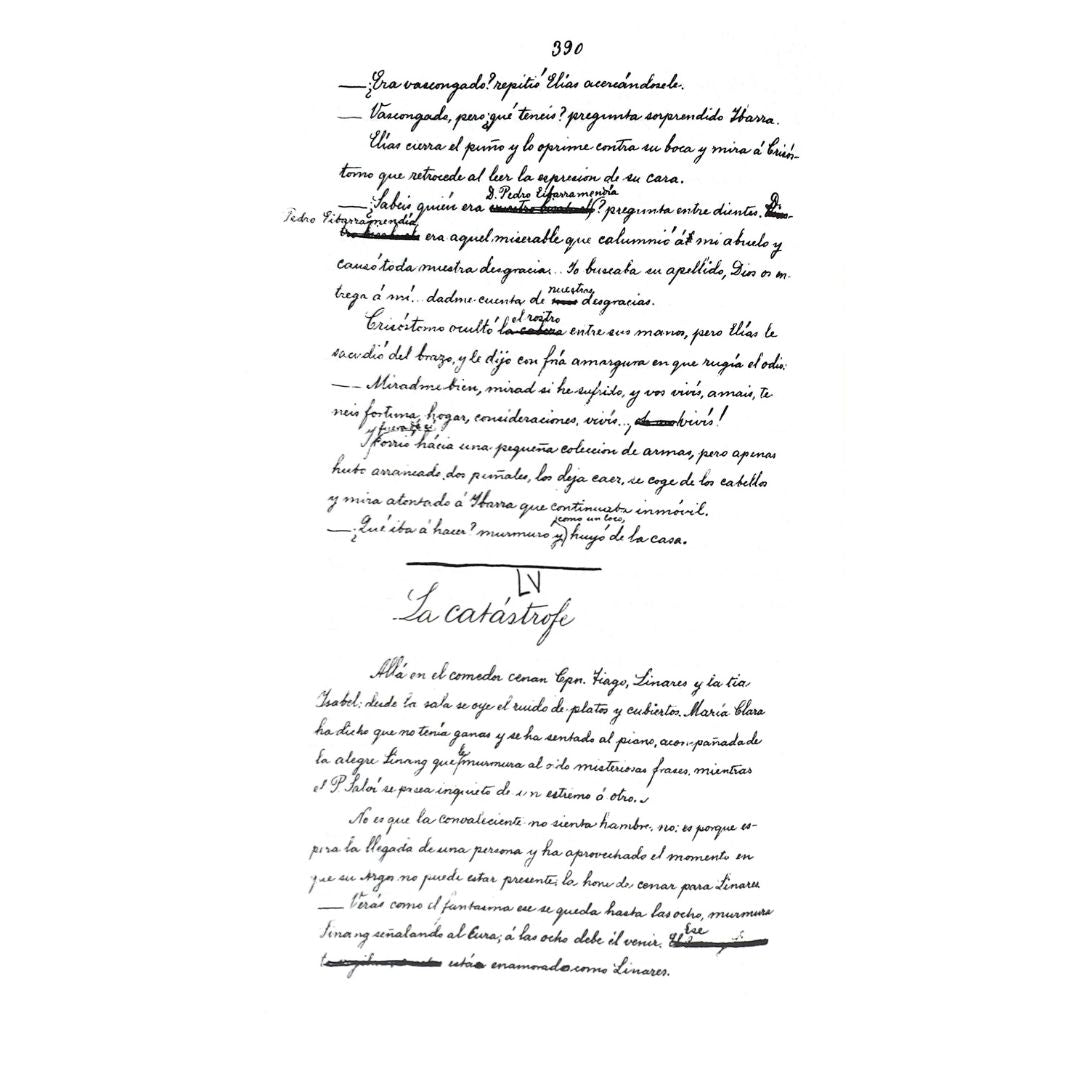 390
— ¿Era vascongado? repitió Elías acercándosele.
— Vascongado, pero ¿qué teneis? pregunta sorprendido Ibarra.
Elías cierra el puño y lo oprime contra su boca y mira á Crisós-
tomo que retrocede al leer la espresion de su cara.
D. Pedro Eibarramendia
— ¿Sabeis quién era ? pregunta entre dientes. D.
Pedro Eibarramendia
era aquel miserable que calumnió á mi abuelo y
causó toda nuestra desgracia... Yo buscaba su apellido, Dios os en-
nuestras
trega á mí... dadme cuenta de desgracias.
el rostro
Crisóstomo ocultó la cabeza entre sus manos, pero Elías le
sacudió del brazo, y le dijo con fría amargura en que rugía el odio:
— Miradme bien, mirad si he sufrido, y vos vivís, amais, te
neis fortuna, hogar, consideraciones, vivís..., vivís!
Y corrió hácia una pequeña coleccion de armas, pero apenas
hubo arrancado dos puñales, los deja caer, se coge de los cabellos
y mira atontado á Ibarra que continuaba inmóvil.
como un loco,
— ¿Qué iba á hacer? murmuro y huyó de la casa.
LV
La catástrofe
Allá en el comedor cenan Cpn. Tiago, Linares y la tia
Isabel; desde la sala se oye el ruido de platos y cubiertos. María Clara
ha dicho que no tenía ganas y se ha sentado al piano, acompañada de
la alegre Sinang que murmura al oido misteriosas frases, mientras
el P. Salví se pasea inquieto de un estremo á otro.
No es que la convaleciente no sienta hambre, no; es porque es-
pera la llegada de una persona y ha aprovechado el momento en
que su Argos no puede estar presente: la hora de cenar para Linares.
— Verás como el fantasma ese se queda hasta las ocho, murmura
Sinang señalando al Cura; á las ocho debe él venir. Ese
está enamorado como Linares.